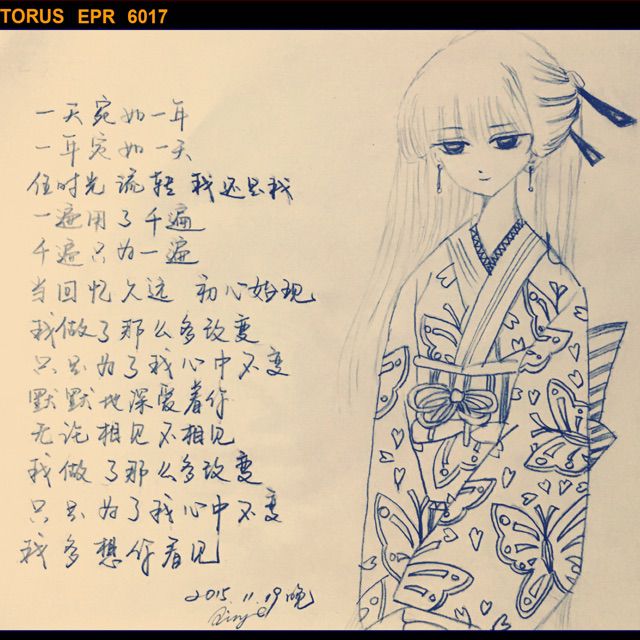 TORUS EPR 6017
一天宛如一年
一年宛如一天
任时光流转 我还是我
一遍用了千遍
千遍只为一遍
当回忆久远 初心始现
我做了那么多改变
只是为了我心中不变
默默地深爱着你
无论相见不相见
我做了那么多改变
只是为了我心中不变
我多想你看见
2015.11.19晚